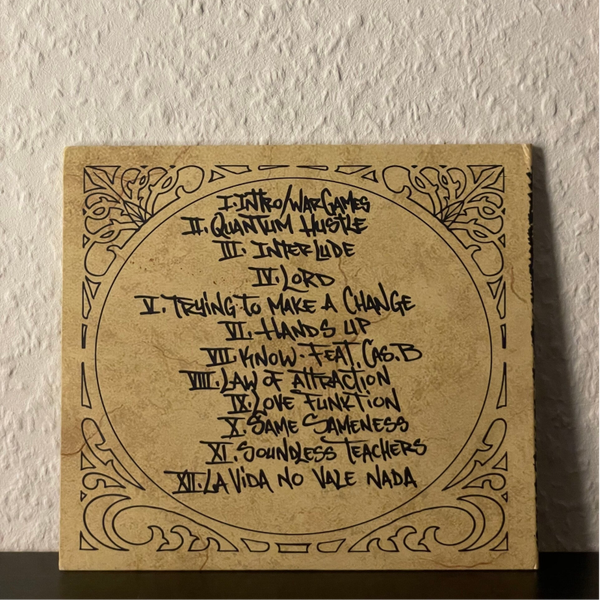 I. INTRO/WARGAMES
II. QUANTUM HUSTLE
III. INTERLUDE
IV. LORD
V. TRYING TO MAKE A CHANGE
VI. HANDS UP
VII. KNOW. FEAT. CAS.B
VIII. LAW OF ATTRACTION
IX. LOVE FUNKTION
X. SAME SAMENESS
XI. SOUNDLESS TEACHERS
XII. LA VIDA NO VALE NADA